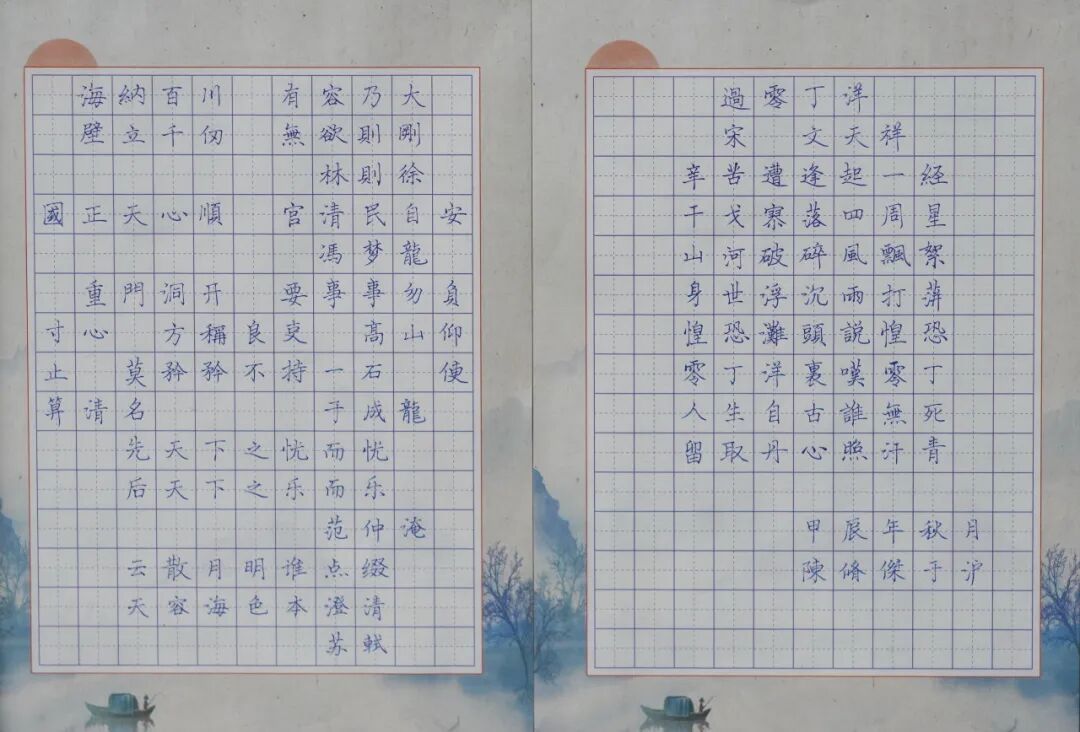 海納百川 有容乃大
壁立千仞 無欲則剛
林則徐
國正天心順 官清民自安
馮梦龍
重門洞开 要事事勿負
寸心 方稱良吏 高山仰
止 莫矜矜不持一石便
算清名 于成龍
先天下之忧而忧
后天下之乐而乐
范仲淹
云散月明谁点缀
天容海色本澄清
苏軾
過零丁洋
宋 文天祥
辛苦遭逢起一経
干戈寥落四周星
山河破碎風飄絮
身世浮沉雨打萍
惶恐灘頭說惶恐
零丁洋裏嘆零丁
人生自古誰無死
留取丹心照汗青
甲辰年秋月
陳脩傑于沪